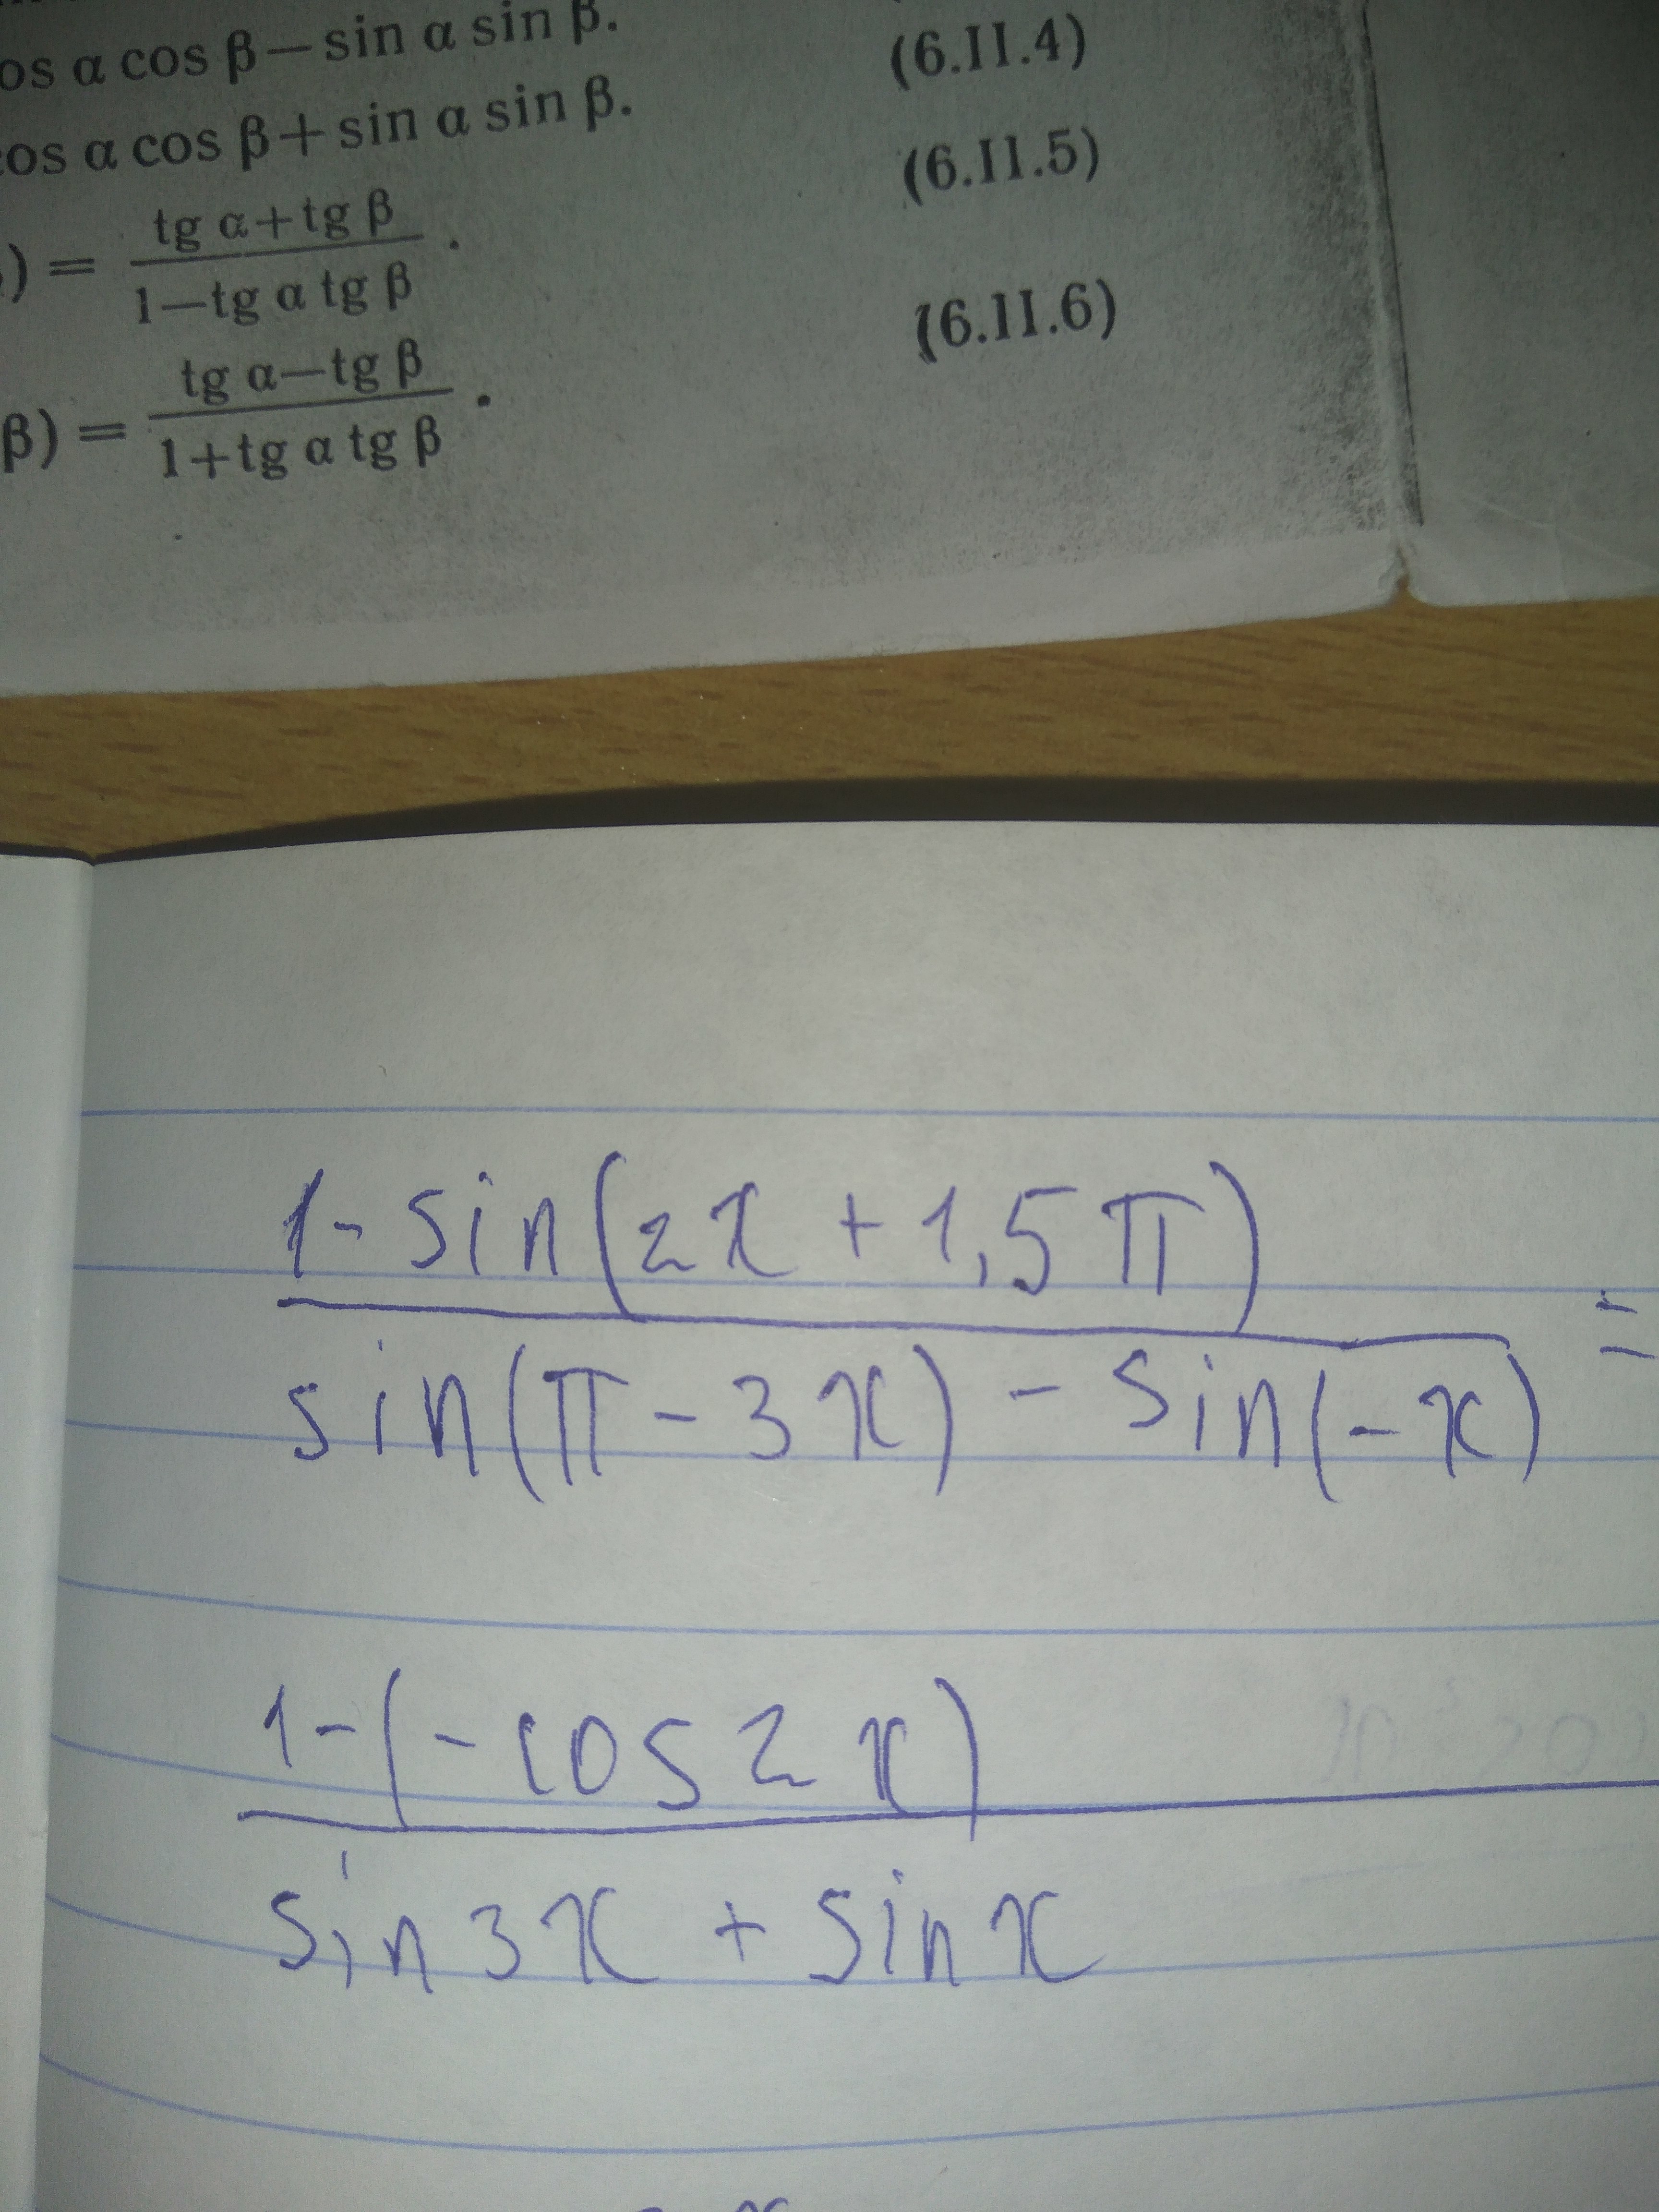 cos β−sin α sin β. (6.II.4)
cos α cos β+sin α sin β. (6.II.5)
) = tg α+tg β
1−tg α tg β . (6.II.6)
β) = tg α−tg β
1+tg α tg β .
1- sin(2x + 1,5π)
sin(π - 3x) - sin(-x) =
1-(-cos2x)
sin3x + sinx